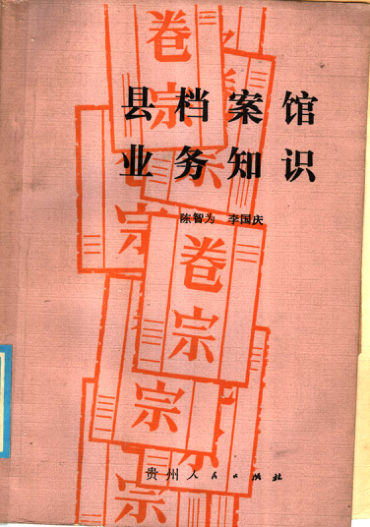 县档案馆
业务知识
陈智为 李国庆
卷宗
卷宗
宗
宗
宗
贵州人民出版社